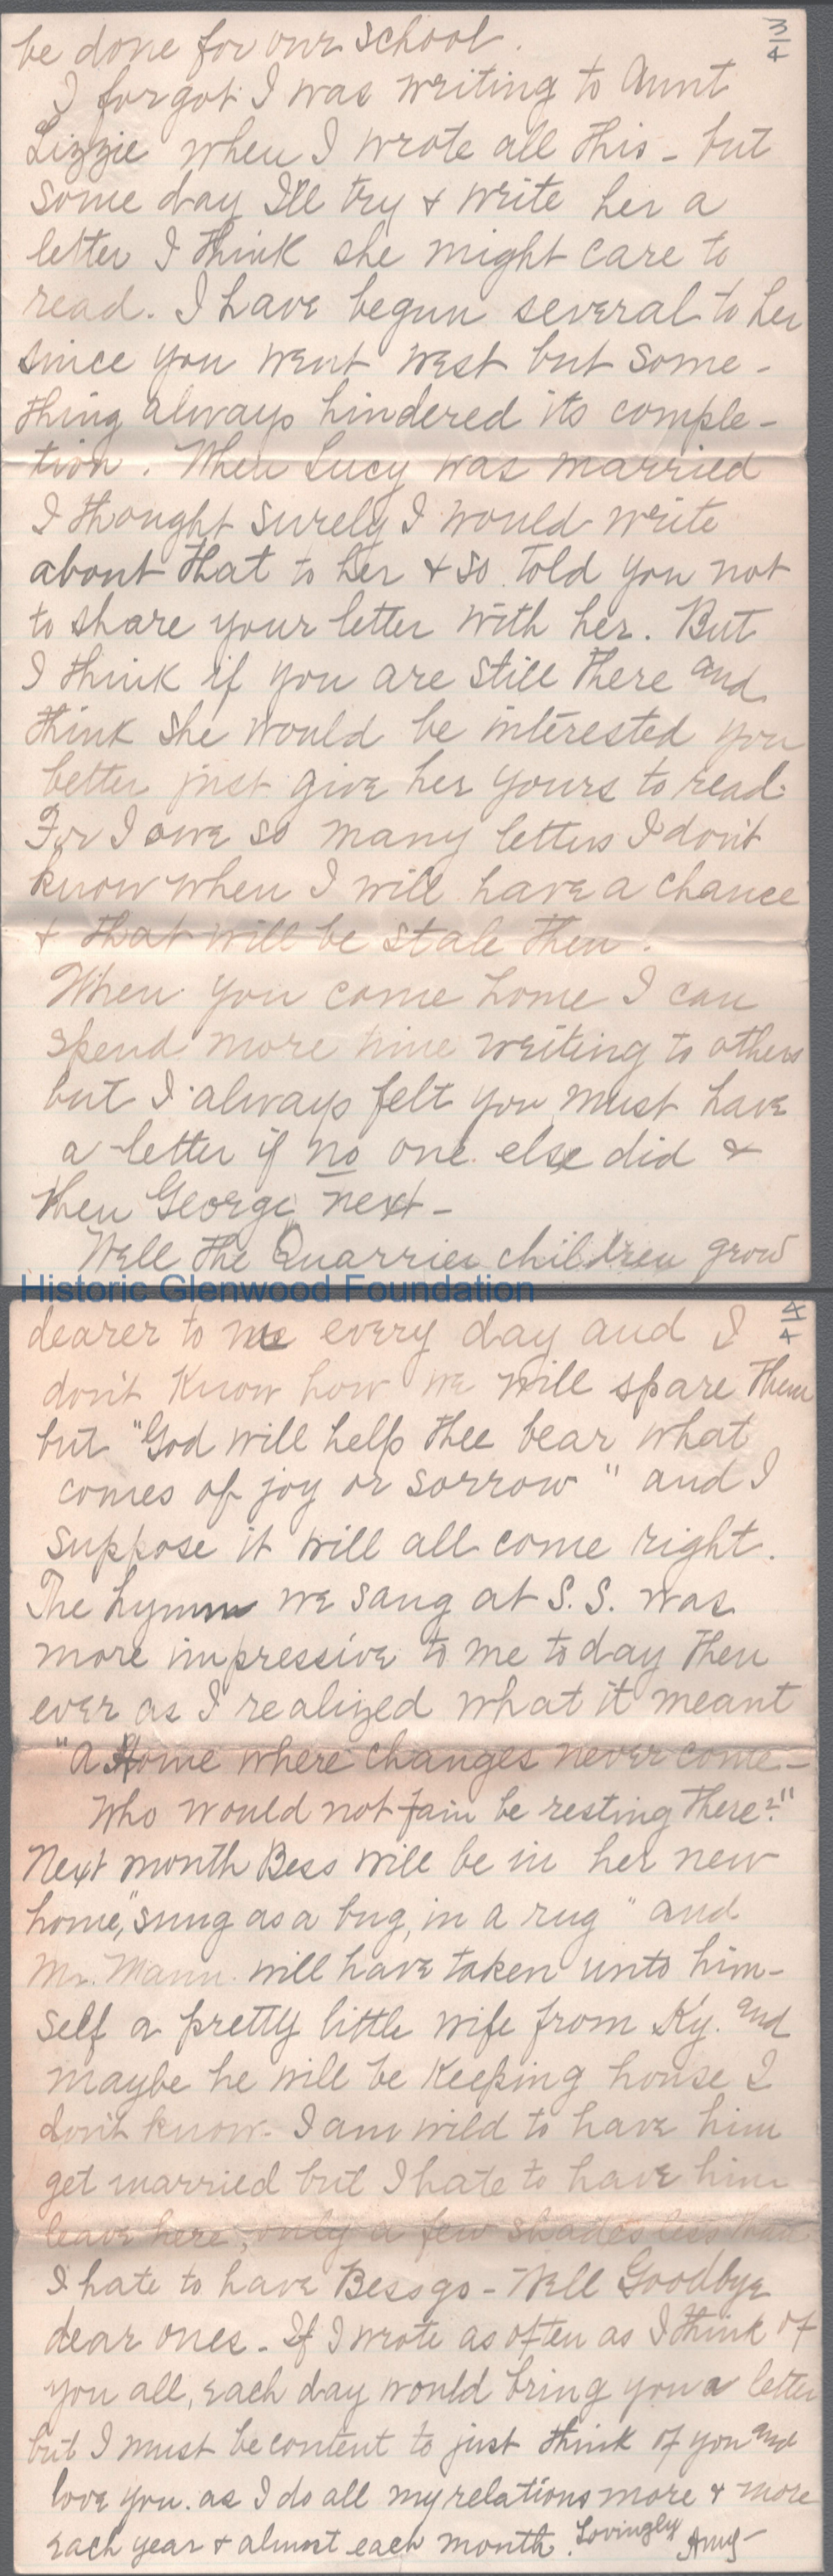 3/4
be done for our school.
I forgot I was writing to Aunt
Lizzie when I wrote all this - but
some day I'll try & write her a
letter I think she might care to
read. I have begun several to her
since you went west but some-
thing always hindered its comple-
tion. When Lucy was married
I thought surely I would write
about that to her & so told you not
to share your letter with her. But
I think if you are still there and
think she would be interested you
better just give her yours to read.
For I owe so many letters I don't
know when I will have a chance
& that will be stale then.
When you come home I can
spend more time writing to others
but I always felt you must have
a letter if no one else did &
then George next -
Well the Quarrier children grow
Historic Glenwood Foundation
4/4
dearer to me every day and I
don't know how we will spare them
but "God will help thee bear what
comes of joy or sorrow" and I
suppose it will all come right.
The hymn we sang at S.S. was
more impressive to me today then
ever as I realized what it meant
"A Home where changes never come -
Who would not fain be resting there?"
Next month Bess will be in her new
home, "snug as a bug, in a rug" and
Mr. Mann will have taken unto him-
self a pretty little wife from Ky. and
maybe he will be keeping house I
don't know - I am wild to have him
get married but I hate to have him
leave here, only a few shades less than
I hate to have Bess go - Well Goodbye
dear ones - If I wrote as often as I think of
you all, each day would bring you a letter
but I must be content to just think of you and
love you. as I do all my relations more & more
each year & almost each month. Lovingly Amy -